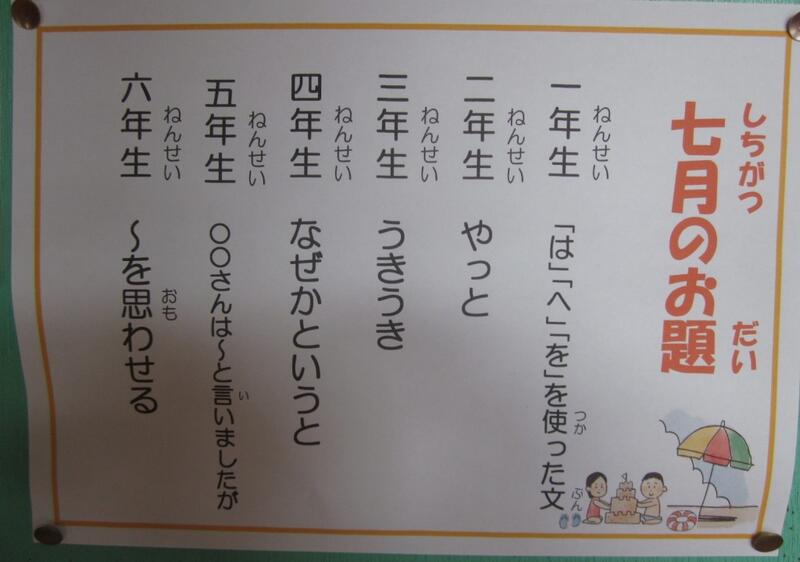 七月のお題
しちがつ だい
一年生 「は」「へ」「を」を使った文
ねんせい つか ぶん
二年生 やっと
ねんせい
三年生 うきうき
ねんせい
四年生 なぜかというと
ねんせい
五年生 〇〇さんは～と言いましたが
ねんせい い
六年生 ～を思わせる
ねんせい おも